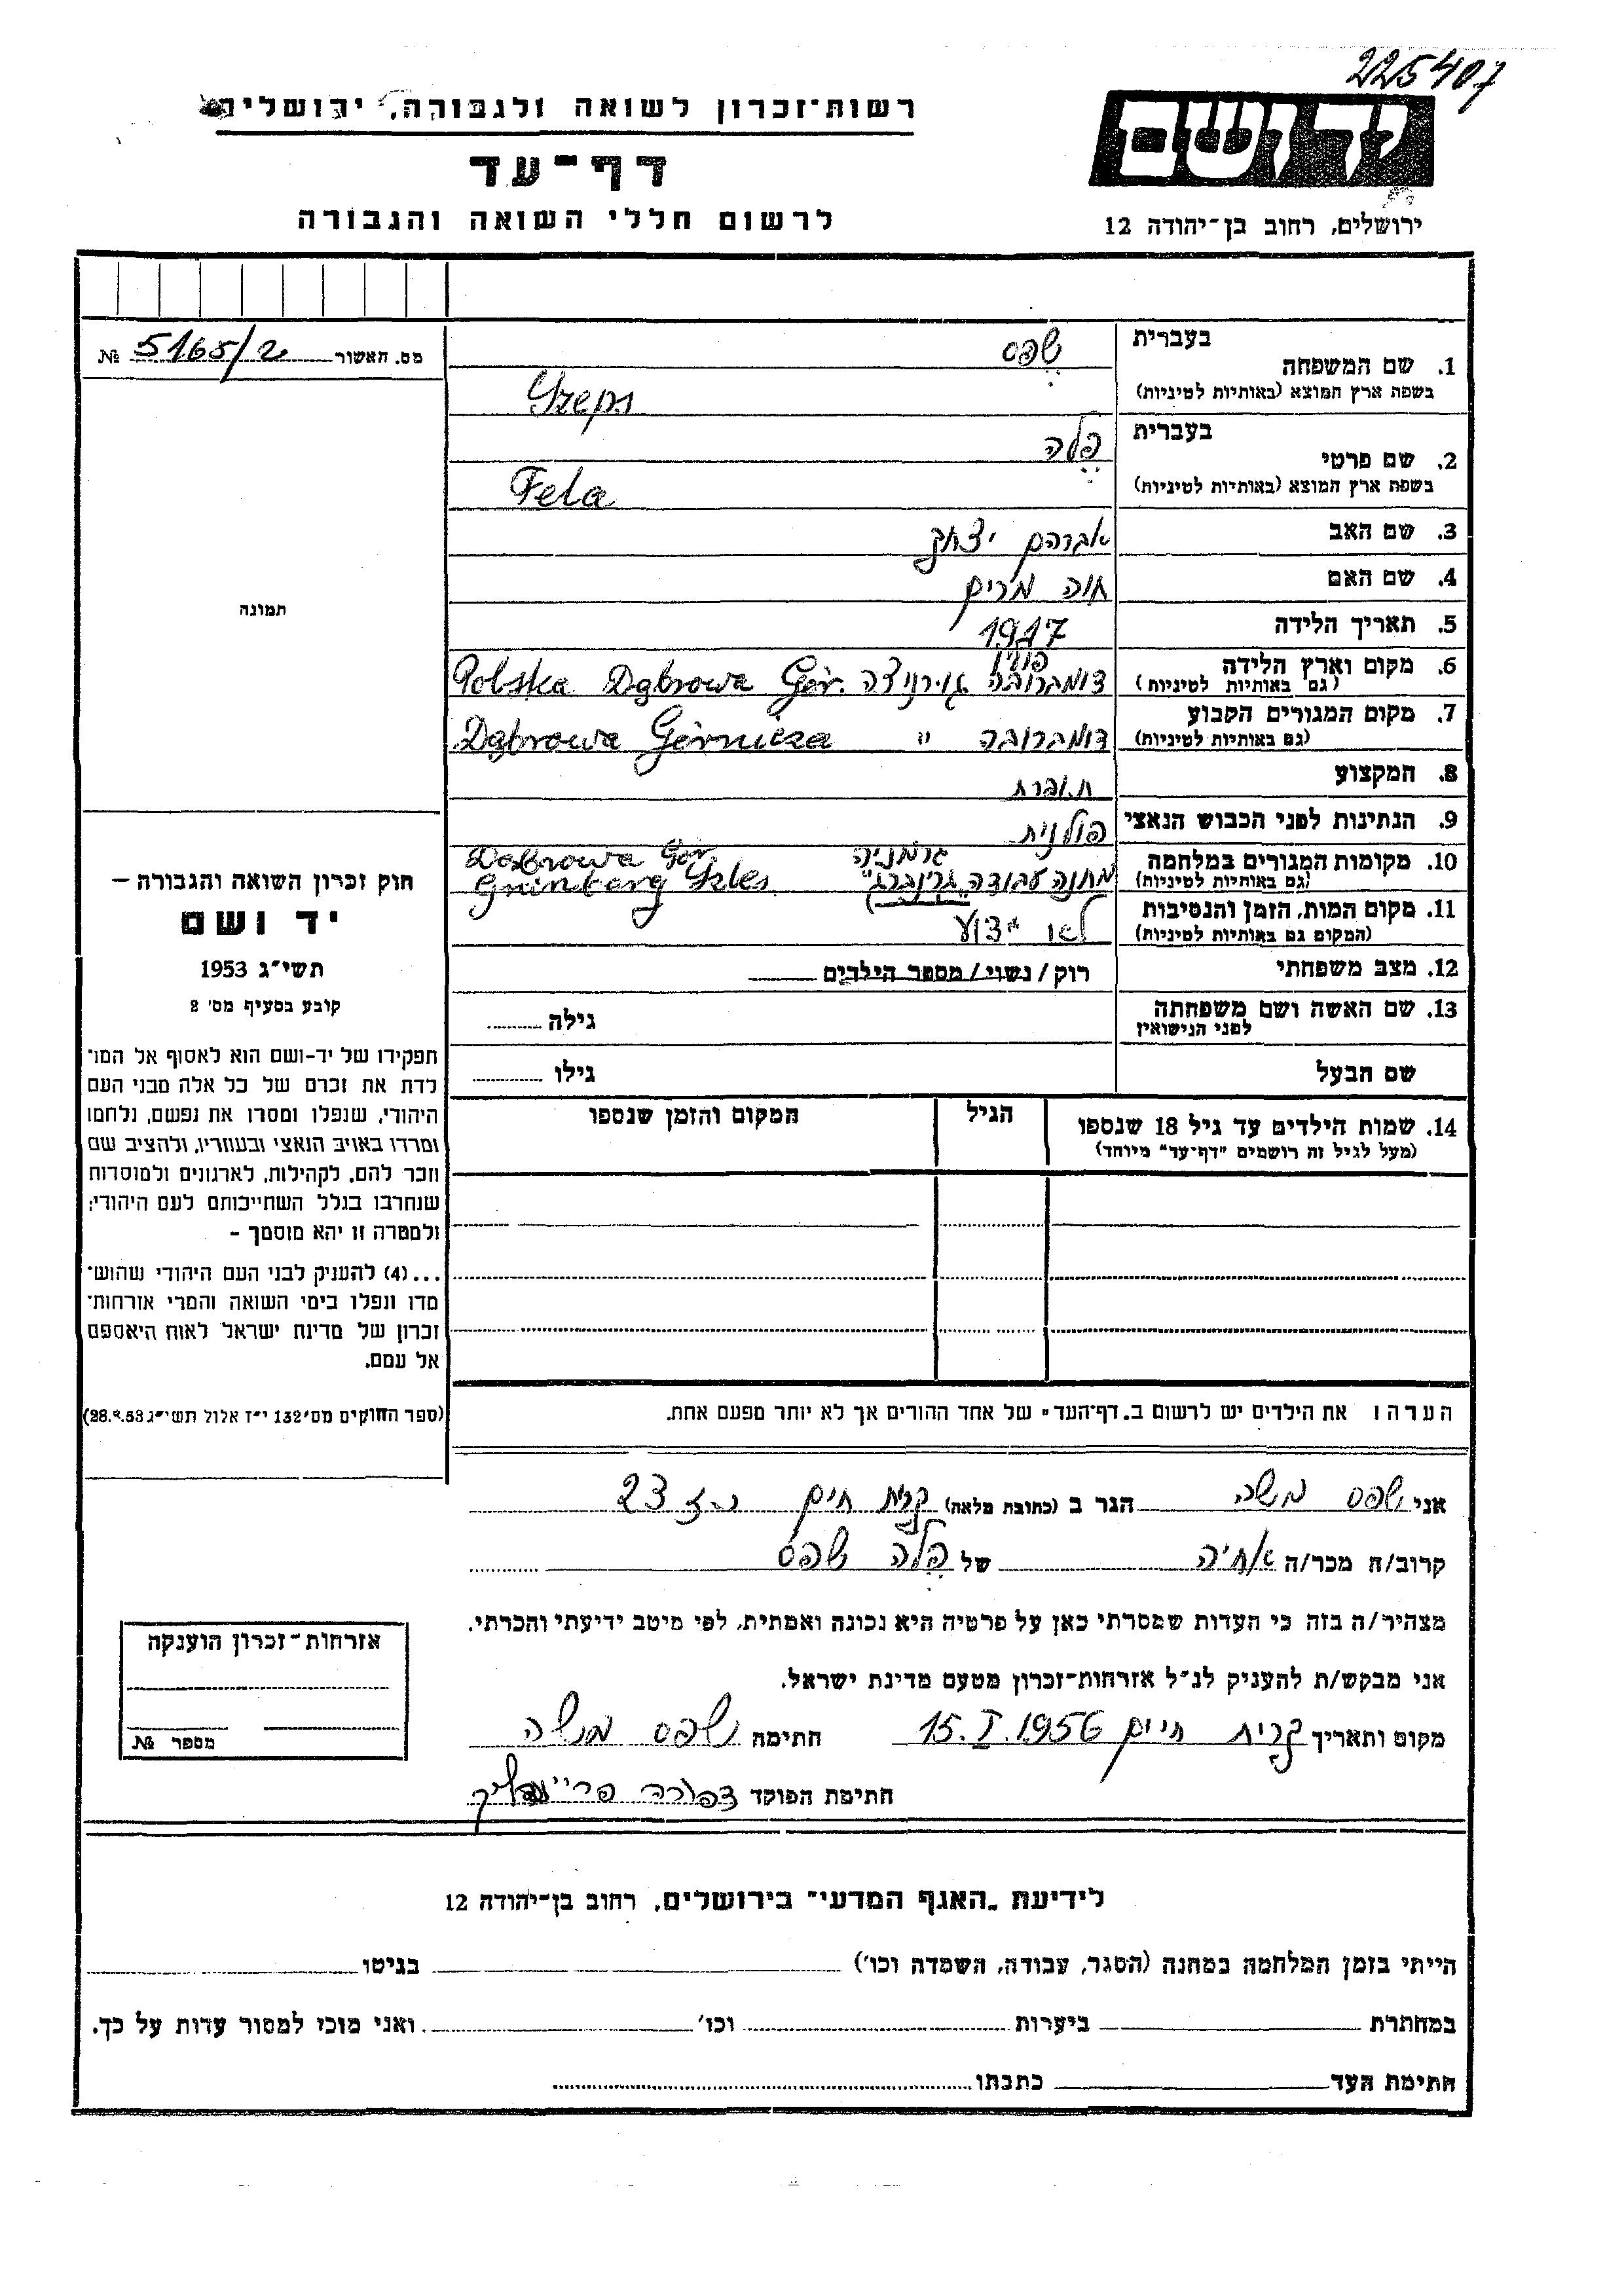 225407
רשות־זכרון לשואה ולגבורה, ירושלים
יד ושם
דף־עד
ירושלים, רחוב בן־יהודה 12
לרשום חללי השואה והגבורה
מס. האשור 5165/2 №
תמונה
חוק זכרון השואה והגבורה —
יד ושם
תשי״ג 1953
קובע בסעיף מס׳ 2
תפקידו של יד-ושם הוא לאסוף אל המו־
לדת את זכרם של כל אלה מבני העם
היהודי, שנפלו ומסרו את נפשם, נלחמו
ומרדו באויב הנאצי ובעוזריו, ולהציב שם
וזכר להם, לקהילות, לארגונים ולמוסדות
שנחרבו בגלל השתייכותם לעם היהודי;
ולמטרה זו יהא מוסמך –
...(4) להעניק לבני העם היהודי שהוש־
מדו ונפלו בימי השואה והמרי אזרחות־
זכרון של מדינת ישראל לאות היאספם
אל עמם.
(ספר החוקים מס׳ 132 י״ז אלול תשי״ג 28.8.53)
בעברית שפס
1. שם המשפחה
בשפת ארץ המוצא (באותיות לטיניות) Szeps
בעברית פלה
2. שם פרטי
בשפת ארץ המוצא (באותיות לטיניות) Fela
3. שם האב אברהם יצחק
4. שם האם חוה מרים
5. תאריך הלידה 1917
6. מקום וארץ הלידה פולין
(גם באותיות לטיניות) דומברובה גורניצה Polska Dąbrowa Gór.
7. מקום המגורים הקבוע
(גם באותיות לטיניות) דומברובה " Dąbrowa Górnicza
8. המקצוע תופרת
9. הנתינות לפני הכבוש הנאצי פולנית
10. מקומות המגורים במלחמה גרמניה Dąbrowa Gór.
(גם באותיות לטיניות) מחנה עבודה "גרינברג" Grünberg Szles.
11. מקום המות, הזמן והנסיבות לא ידוע
(המקום גם באותיות לטיניות)
12. מצב משפחתי רוק / נשוי / מספר הילדים
13. שם האשה ושם משפחתה גילה
לפני הנישואין
שם הבעל גילו
14. שמות הילדים עד גיל 18 שנספו הגיל המקום והזמן שנספו
(מעל לגיל זה רושמים "דף־עד" מיוחד)
הערה: את הילדים יש לרשום ב„דף־העד" של אחד ההורים אך לא יותר מפעם אחת.
אני שפס משה הגר ב (כתובת מלאה) קרית חים 23
קרוב/ה מכר/ה אחיה של פלה שפס
מצהיר/ה בזה כי העדות שמסרתי כאן על פרטיה היא נכונה ואמתית, לפי מיטב ידיעתי והכרתי.
אני מבקש/ת להעניק לנ״ל אזרחות־זכרון מטעם מדינת ישראל.
מקום ותאריך קרית חיים 15.I.1956 חתימה שפס משה
חתימת הפוקד צפורה
אזרחות־זכרון הוענקה
מספר №
לידיעת „האגף המדעי" בירושלים, רחוב בן־יהודה 12
הייתי בזמן המלחמה במחנה (הסגר, עבודה, השמדה וכו׳) בגיטו
במחתרת ביערות וכו׳ ואני מוכן למסור עדות על כך.
חתימת העד כתבתו